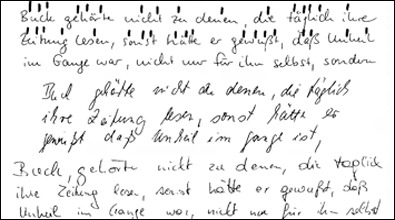 Buck gehörte nicht zu denen, die täglich ihre
Zeitung lesen, sonst hätte er gewußt, daß Unheil
im Gange war, nicht nur für ihn selbst, sondern
Buck gehötte nicht zu denen, die täglich
ihre Zeitung lesen, sonst hätte er
gewußt daß Unheil im gange ist,
Buck, gehörte nicht zu denen, die täglich
ihre Zeitung lesen, sonst hätte er gewußt, daß
Unheil im Gange war, nicht nur für ihn selbst